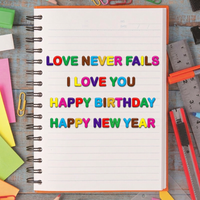 LOVE NEVER FAILS
I LOVE YOU
HAPPY BIRTHDAY
HAPPY NEW YEAR